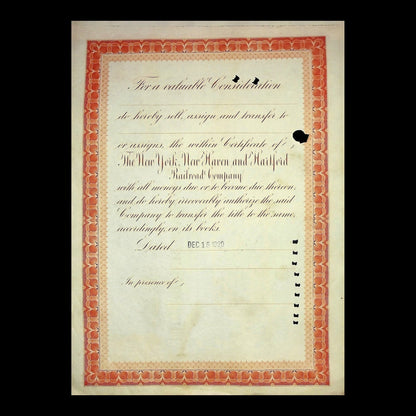 For a valuable Consideration
do hereby sell, assign and transfer to
or assigns, the within Certificate of,
The New York, New Haven and Hartford
Railroad Company
with all moneys due or to become due thereon,
and do hereby irrevocably authorize the said
Company to transfer the title to the same,
accordingly, on its books.
Dated DEC 18
In presence of,